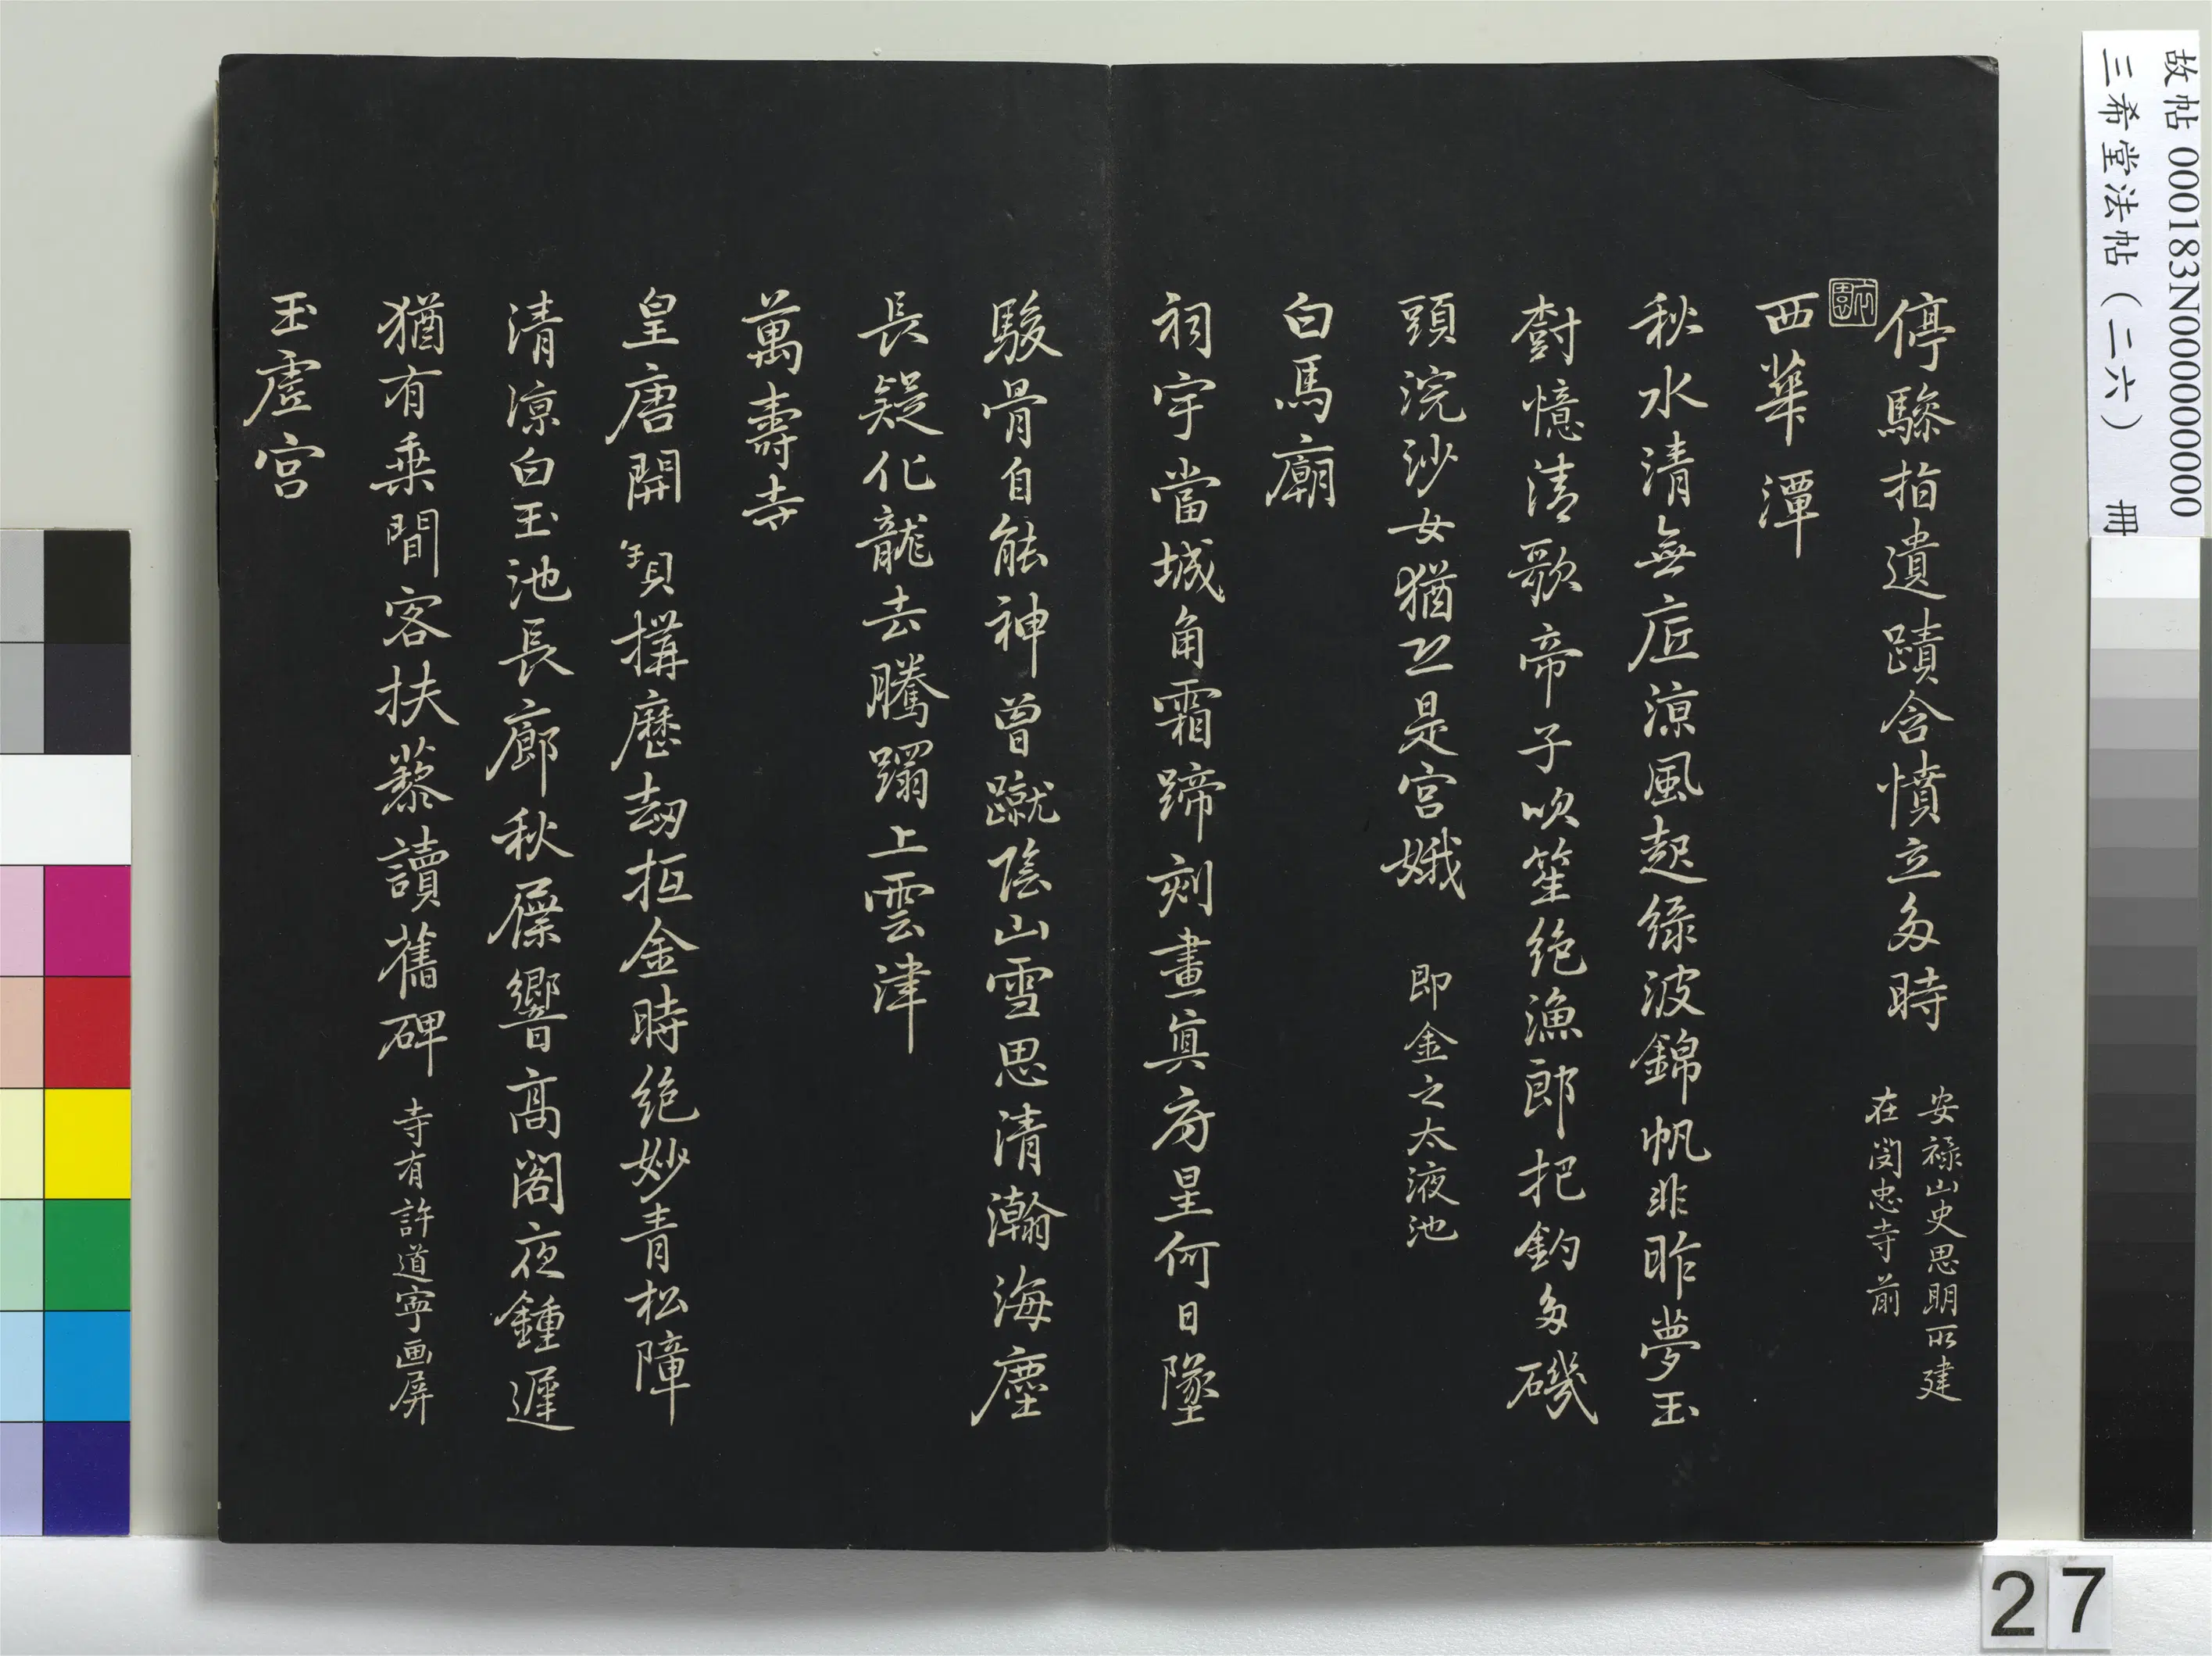 故帖 000183N000000000
三希堂法帖（二六） 冊
停驂指遺蹟含憤立多時 安祿山史思明所建
在閔忠寺前
西華潭
秋水清無底涼風起綠波錦帆非昨夢玉
樹憶清歌帝子吹笙絕漁郎把釣多磯
頭浣沙女猶恐是宮娥 即金之太液池
白馬廟
祠宇當城角霜蹄刻畫真房星何日墜
駿骨自能神曾蹴陰山雪思清瀚海塵
長疑化龍去騰躡上雲津
萬壽寺
皇唐開寶構歷劫抵金時絕妙青松障
清涼白玉池長廊秋屧響高閣夜鍾遲
猶有乗閒客扶藜讀舊碑 寺有許道寧画屏
玉虛宮
27